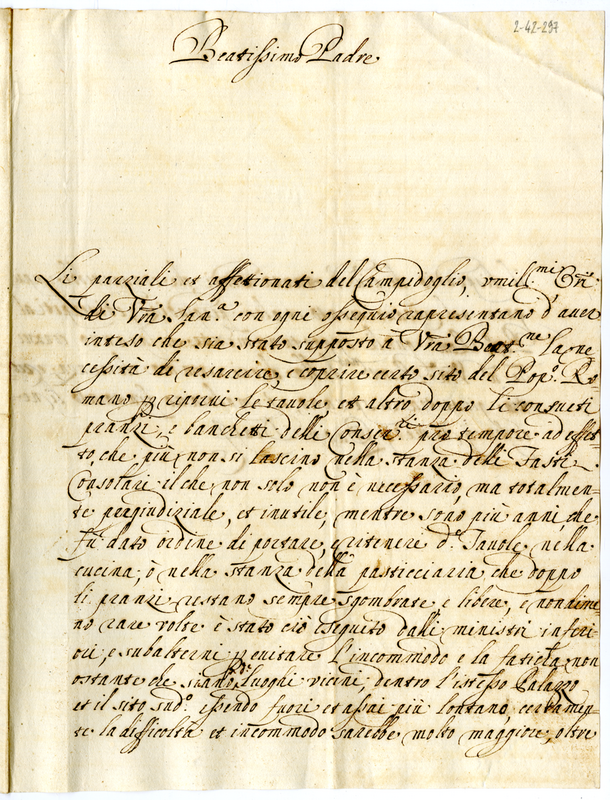 2-42-297
Beatissimo Padre
Li parziali et affettionati del Campidoglio, umill.mi
di Vrã San.ã con ogni ossequio rapresentano d'aver
inteso che sia stato supposto a Vrã Beat.ne la ne
cessità di resarcire, e coprire certo sito del Pop.o Ro
mano p riporvi le tavole et altro doppo li consueti
pranzi, e banchetti delli Conser.ti pro tempore ad effet-
to, che più non si lascino nella stanza delli Fasti
Consolari il che non solo non è necessario, ma totalmen-
te pregiudiziale, et inutile, mentre sono più anni che
fu dato ordine di portare, e ritenere d.e Tavole nella
cucina, ò nella stanza della pasticciaria che doppo
li pranzi restano sempre sgombrate e libere, e nondime
no rare volte è stato ciò eseguito dalli ministri inferi
ori, e subalterni p evitare l'incommodo e la fatica non
ostante che siano luoghi vicini, dentro l'istesso Palazzo
et il sito sud.o essendo fuori et assai più lontano, certamen-
te la difficoltà et incommodo sarebbe molto maggiore, oltre